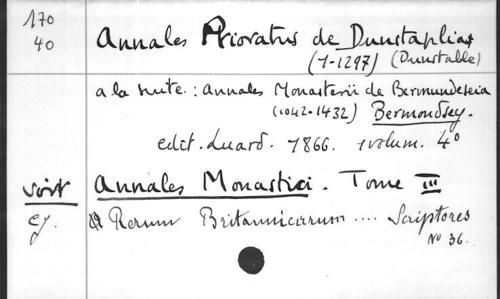 170
40
Annales Prioratus de Dunstaplia
(1-1297) (Dunstable)
a la suite : Annales Monasterii de Bermundeseia
(1042-1432) Bermondsey.
edit. Luard. 1866. 1 volum. 4°
voir Annales Monastici. Tome III
cf. Rerum Britannicarum .... Scriptores
No 36.